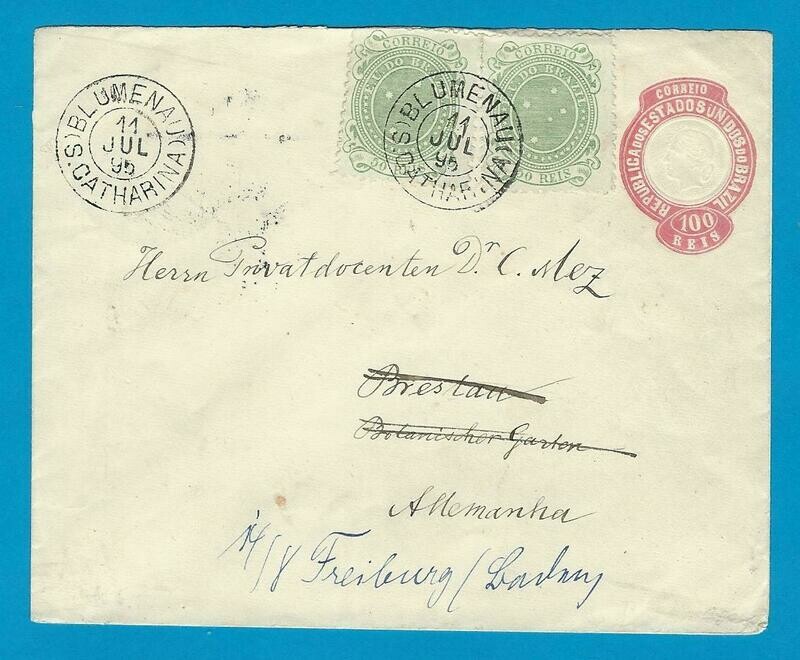 BLUMENAU
11
JUL
95
(S. CATHARINA)
CORREIO
E.U. DO BRAZIL
50
CORREIO
U. DO BRAZIL
REIS
BLUMENAU
11
JUL
95
(S. CATHARINA)
CORREIO
REPUBLICA DOS ESTADOS UNIDOS DO BRAZIL
100
REIS
Herrn Privatdocenten Dr. C. Mez
Breslau
Botanischer Garten
Allemanha
14/8 Freiburg / Baden